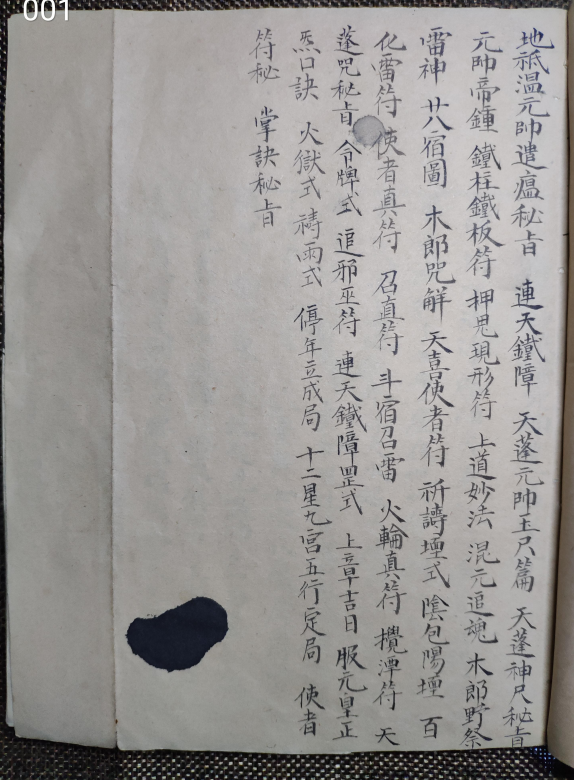 001
地祇溫元帥遣瘟秘旨 連天鐵障 天蓬元帥玉尺篇 天蓬神尺秘旨
元帥帝鍾 鐵柱鐵板符 押鬼現形符 上道妙法 混元追魂 木郎野祭
雷神 廿八宿圖 木郎咒解 天喜使者符 祈禱壇式 陰包陽壇 百
化雷符 使者真符 召真符 斗宿召雷 火輪真符 攪潭符 天
蓬咒秘旨 令牌式 追邪巫符 連天鐵障罡式 上章吉日 服元皇正
炁口訣 火獄式 禱雨式 停年立成局 十二星九宮五行定局 使者
符秘 掌訣秘旨